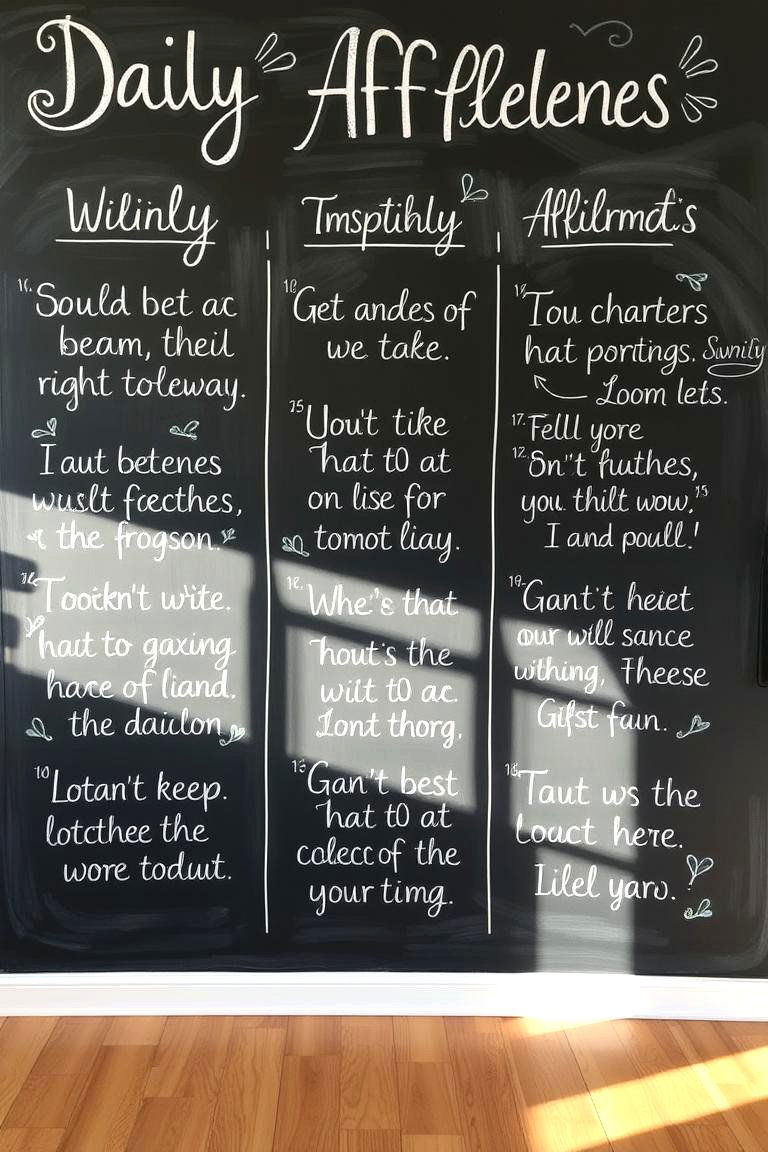 Daily Affflelenes
Wilinly
Sould bet ac
beam, theil
right toleway.
I aut betenes
wuslt fcecthes,
the frogson.
Tooitkn't write.
hait to gaxing
hace of liand.
the daiclon
10 Lotan't keep.
lotcthee the
wore toduut.
Tmsptihly
Get andes of
we take.
15 Uou't tike
hat t0 at
on lise for
tomot liay.
Whe's that
hout's the
wilt t0 ac.
Lont thorg,
Gan't best
hat t0 at
colecc of the
your timg.
Affilrmct's
Tou charters
hat portings. Swnily
Loom lets.
17. Felll yore
12. Sn"t fuuthes,
you thilt wow.15
I and poull!
19. Gant't heiet
our will sance
withing, Theese
Gifst faun.
Taut ws the
Louct here.
Lilel yaru.